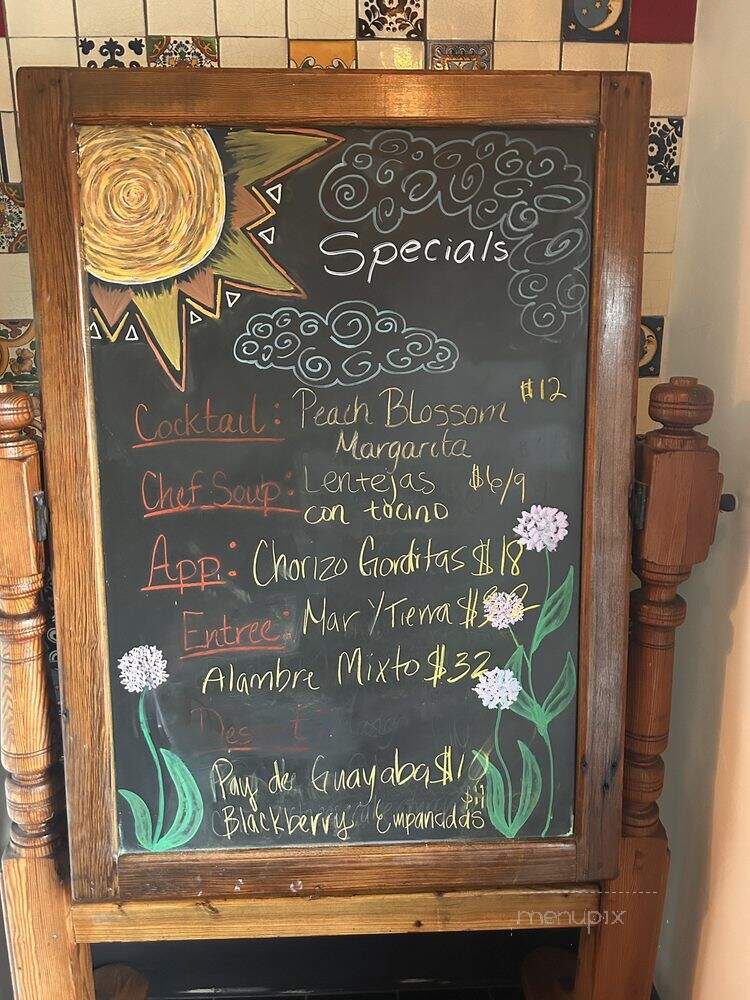 Specials
Cocktail: Peach Blossom $12
Margarita
Chef Soup: Lentejas $6/9
con tocino
App: Chorizo Gorditas $18
Entree: Mar Y Tierra
Alambre Mixto $32
Pay de Guayaba
$11
Blackberry Empanadas
menupix